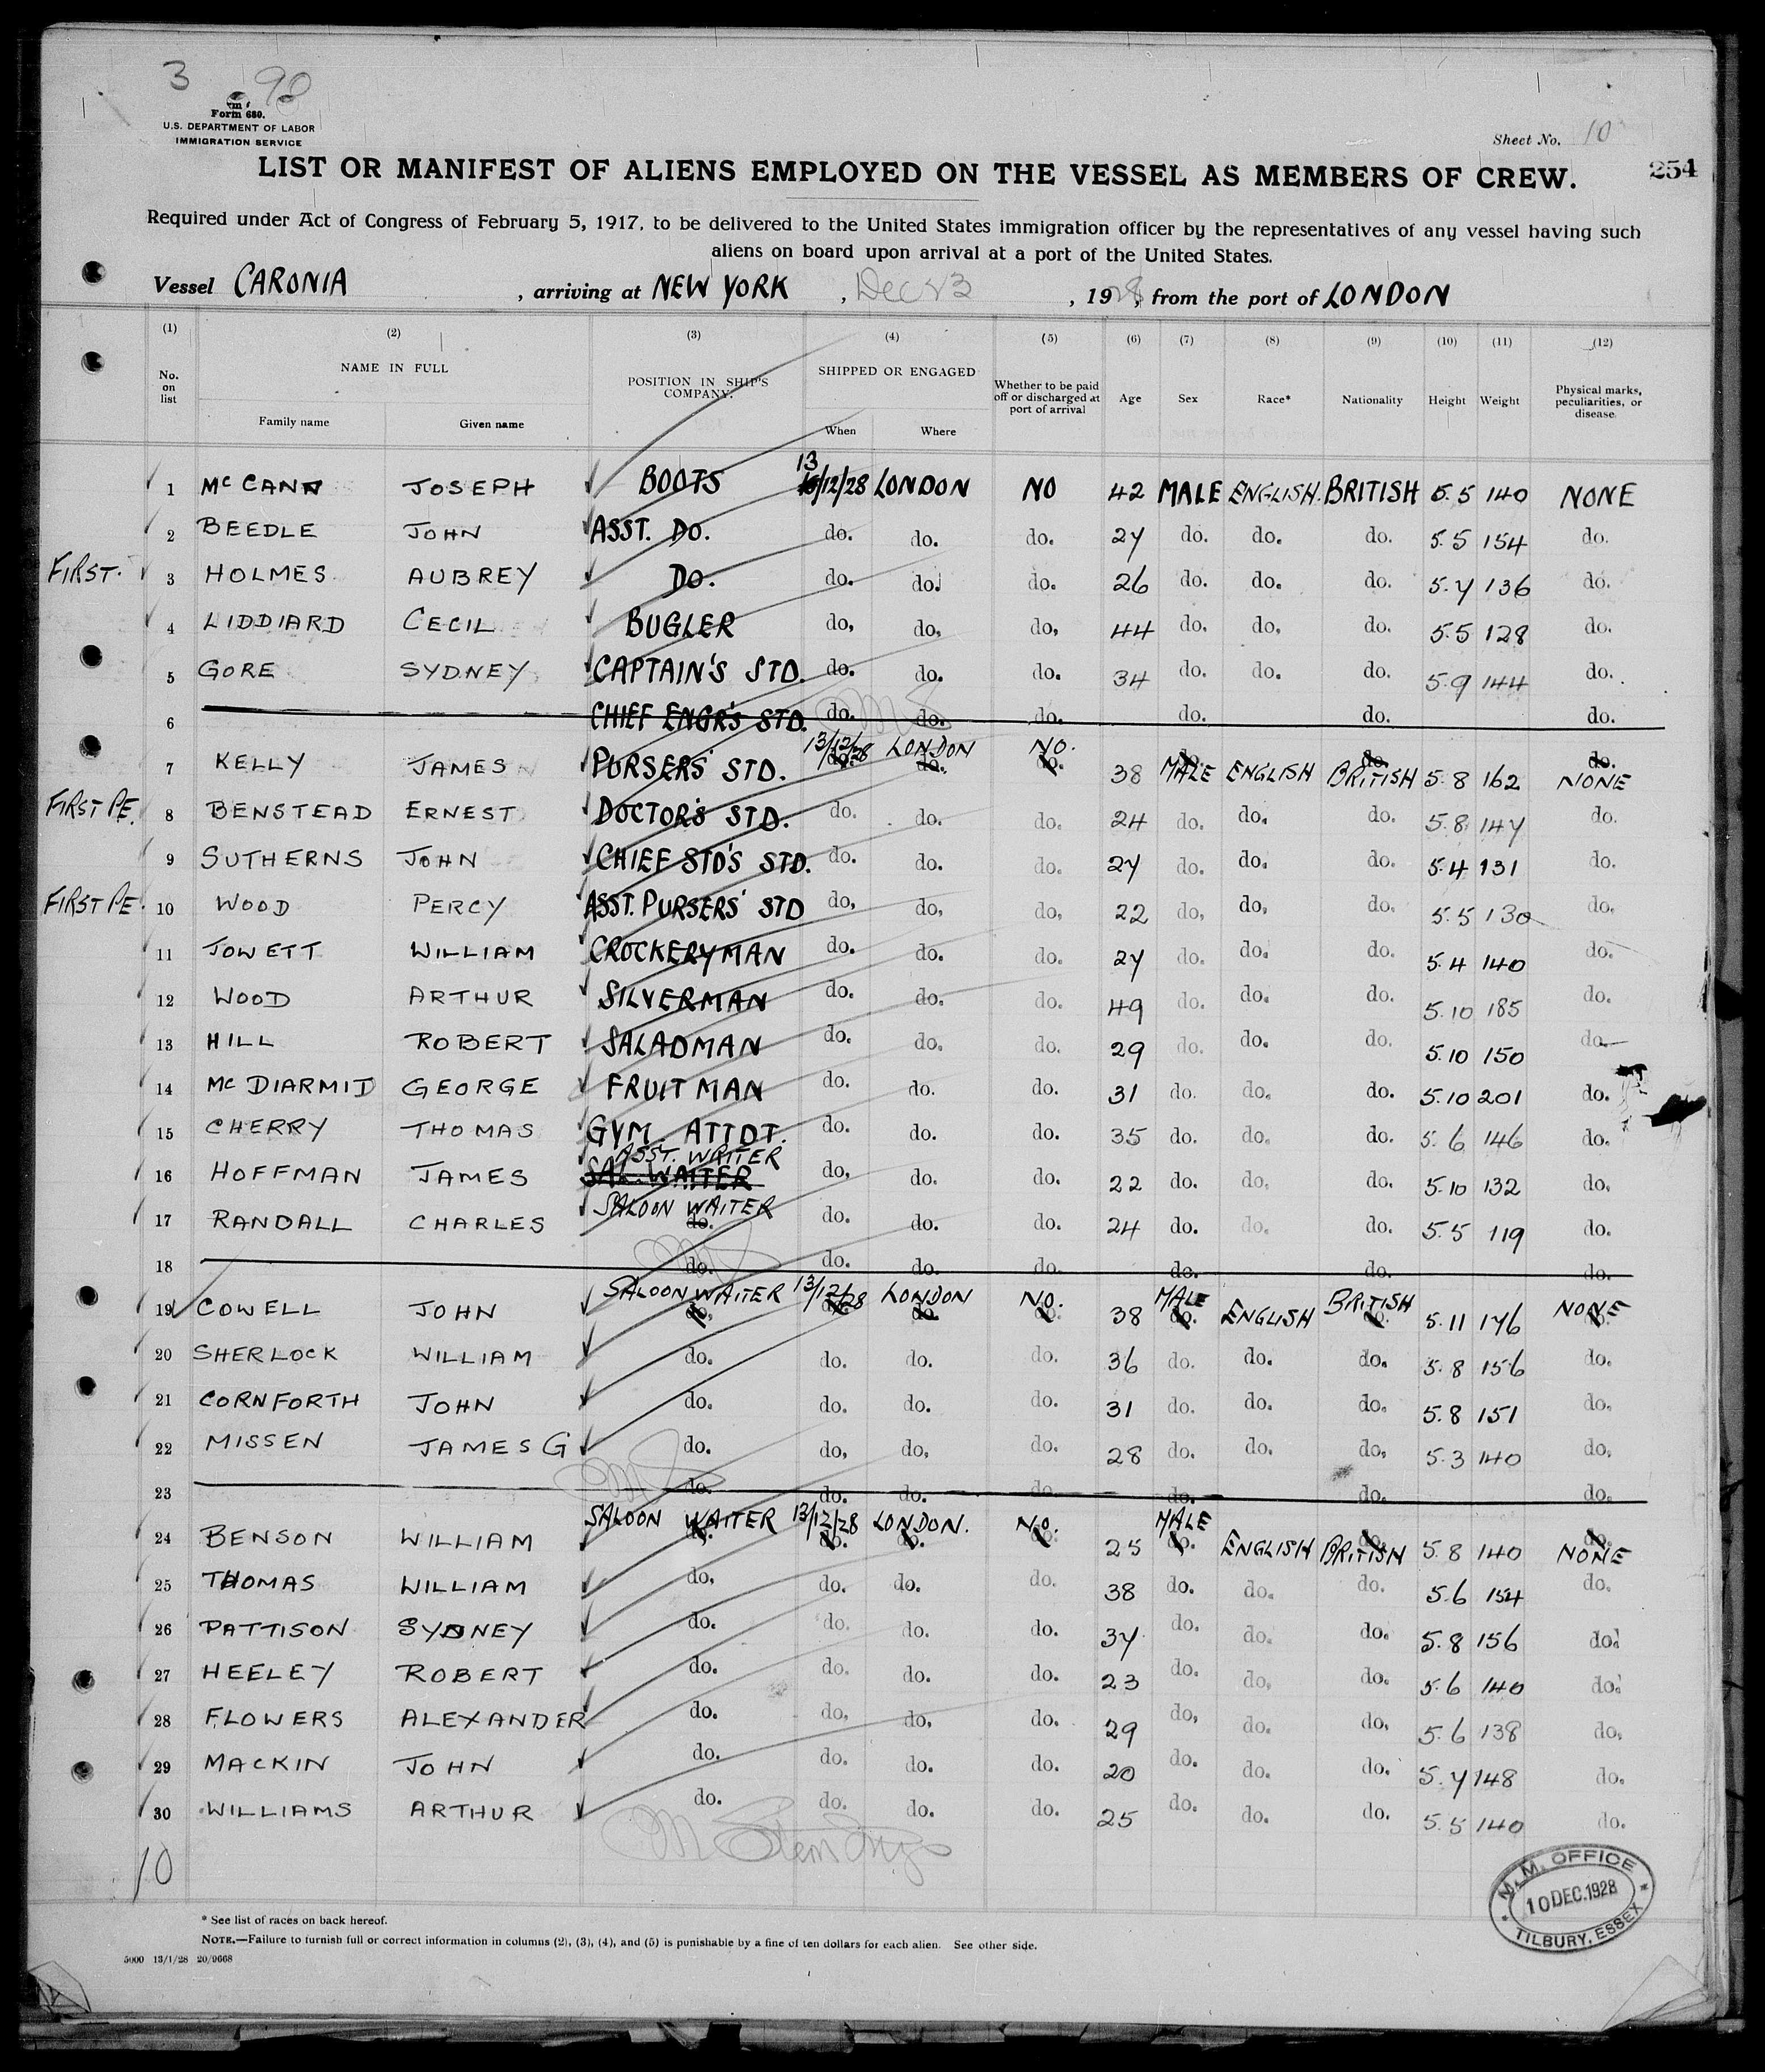 3 90
Form 680.
U.S. DEPARTMENT OF LABOR
IMMIGRATION SERVICE
Sheet No. 10
LIST OR MANIFEST OF ALIENS EMPLOYED ON THE VESSEL AS MEMBERS OF CREW.
254
Required under Act of Congress of February 5, 1917, to be delivered to the United States immigration officer by the representatives of any vessel having such
aliens on board upon arrival at a port of the United States.
Vessel CARONIA, arriving at NEW YORK, Dec 23, 1928, from the port of LONDON
(1) (2) (3) (4) (5) (6) (7) (8) (9) (10) (11) (12)
No. on list NAME IN FULL POSITION IN SHIP'S COMPANY. SHIPPED OR ENGAGED Whether to be paid off or discharged at port of arrival Age Sex Race* Nationality Height Weight Physical marks, peculiarities, or disease.
Family name Given name When Where
1 McCANN JOSEPH BOOTS 13/12/28 LONDON NO 42 MALE ENGLISH. BRITISH 5.5 140 NONE
2 BEEDLE JOHN ASST. DO. do. do. do. 27 do. do. do. 5.5 154 do.
FIRST. 3 HOLMES AUBREY DO. do. do. do. 26 do. do. do. 5.7 136 do.
4 LIDDIARD CECIL BUGLER do. do. do. 44 do. do. do. 5.5 128 do.
5 GORE SYDNEY CAPTAIN'S STD. do. do. do. 34 do. do. do. 5.9 144 do.
6 CHIEF ENGR'S STD. do. do. do. do. do. do.
7 KELLY JAMES PURSERS' STD. 13/12/28 LONDON NO. 38 MALE ENGLISH BRITISH 5.8 162 NONE
FIRST PE. 8 BENSTEAD ERNEST DOCTOR'S STD. do. do. do. 24 do. do. do. 5.8 147 do.
9 SUTHERNS JOHN CHIEF STD'S STD. do. do. do. 27 do. do. do. 5.4 131 do.
FIRST PE. 10 WOOD PERCY ASST. PURSERS' STD do. do. do. 22 do. do. do. 5.5 130 do.
11 JOWETT WILLIAM CROCKERYMAN do. do. do. 27 do. do. do. 5.4 140 do.
12 WOOD ARTHUR SILVERMAN do. do. do. 49 do. do. do. 5.10 185 do.
13 HILL ROBERT SALADMAN do. do. do. 29 do. do. do. 5.10 150 do.
14 McDIARMID GEORGE FRUIT MAN do. do. do. 31 do. do. do. 5.10 201 do.
15 CHERRY THOMAS GYM. ATTDT. do. do. do. 35 do. do. do. 5.6 146 do.
ASST. WAITER
16 HOFFMAN JAMES SAL. WAITER do. do. do. 22 do. do. do. 5.10 132 do.
SALOON WAITER
17 RANDALL CHARLES do. do. do. do. 24 do. do. do. 5.5 119 do.
18 do. do. do. do. do. do. do.
19 COWELL JOHN SALOON WAITER 13/12/28 LONDON NO. 38 MALE ENGLISH BRITISH 5.11 176 NONE
20 SHERLOCK WILLIAM do. do. do. do. 36 do. do. do. 5.8 156 do.
21 CORNFORTH JOHN do. do. do. do. 31 do. do. do. 5.8 151 do.
22 MISSEN JAMES G do. do. do. do. 28 do. do. do. 5.3 140 do.
23 do. do. do. do. do. do. do.
24 BENSON WILLIAM SALOON WAITER 13/12/28 LONDON. NO. 25 MALE ENGLISH BRITISH 5.8 140 NONE
25 THOMAS WILLIAM do. do. do. do. 38 do. do. do. 5.6 154 do.
26 PATTISON SYDNEY do. do. do. do. 37 do. do. do. 5.8 156 do.
27 HEELEY ROBERT do. do. do. do. 23 do. do. do. 5.6 140 do.
28 FLOWERS ALEXANDER do. do. do. do. 29 do. do. do. 5.6 138 do.
29 MACKIN JOHN do. do. do. do. 20 do. do. do. 5.7 148 do.
30 WILLIAMS ARTHUR do. do. do. do. 25 do. do. do. 5.5 140 do.
10
M.M. OFFICE
10 DEC. 1928
TILBURY, ESSEX
* See list of races on back hereof.
NOTE.—Failure to furnish full or correct information in columns (2), (3), (4), and (5) is punishable by a fine of ten dollars for each alien. See other side.
5000 13/1/28 20/9668